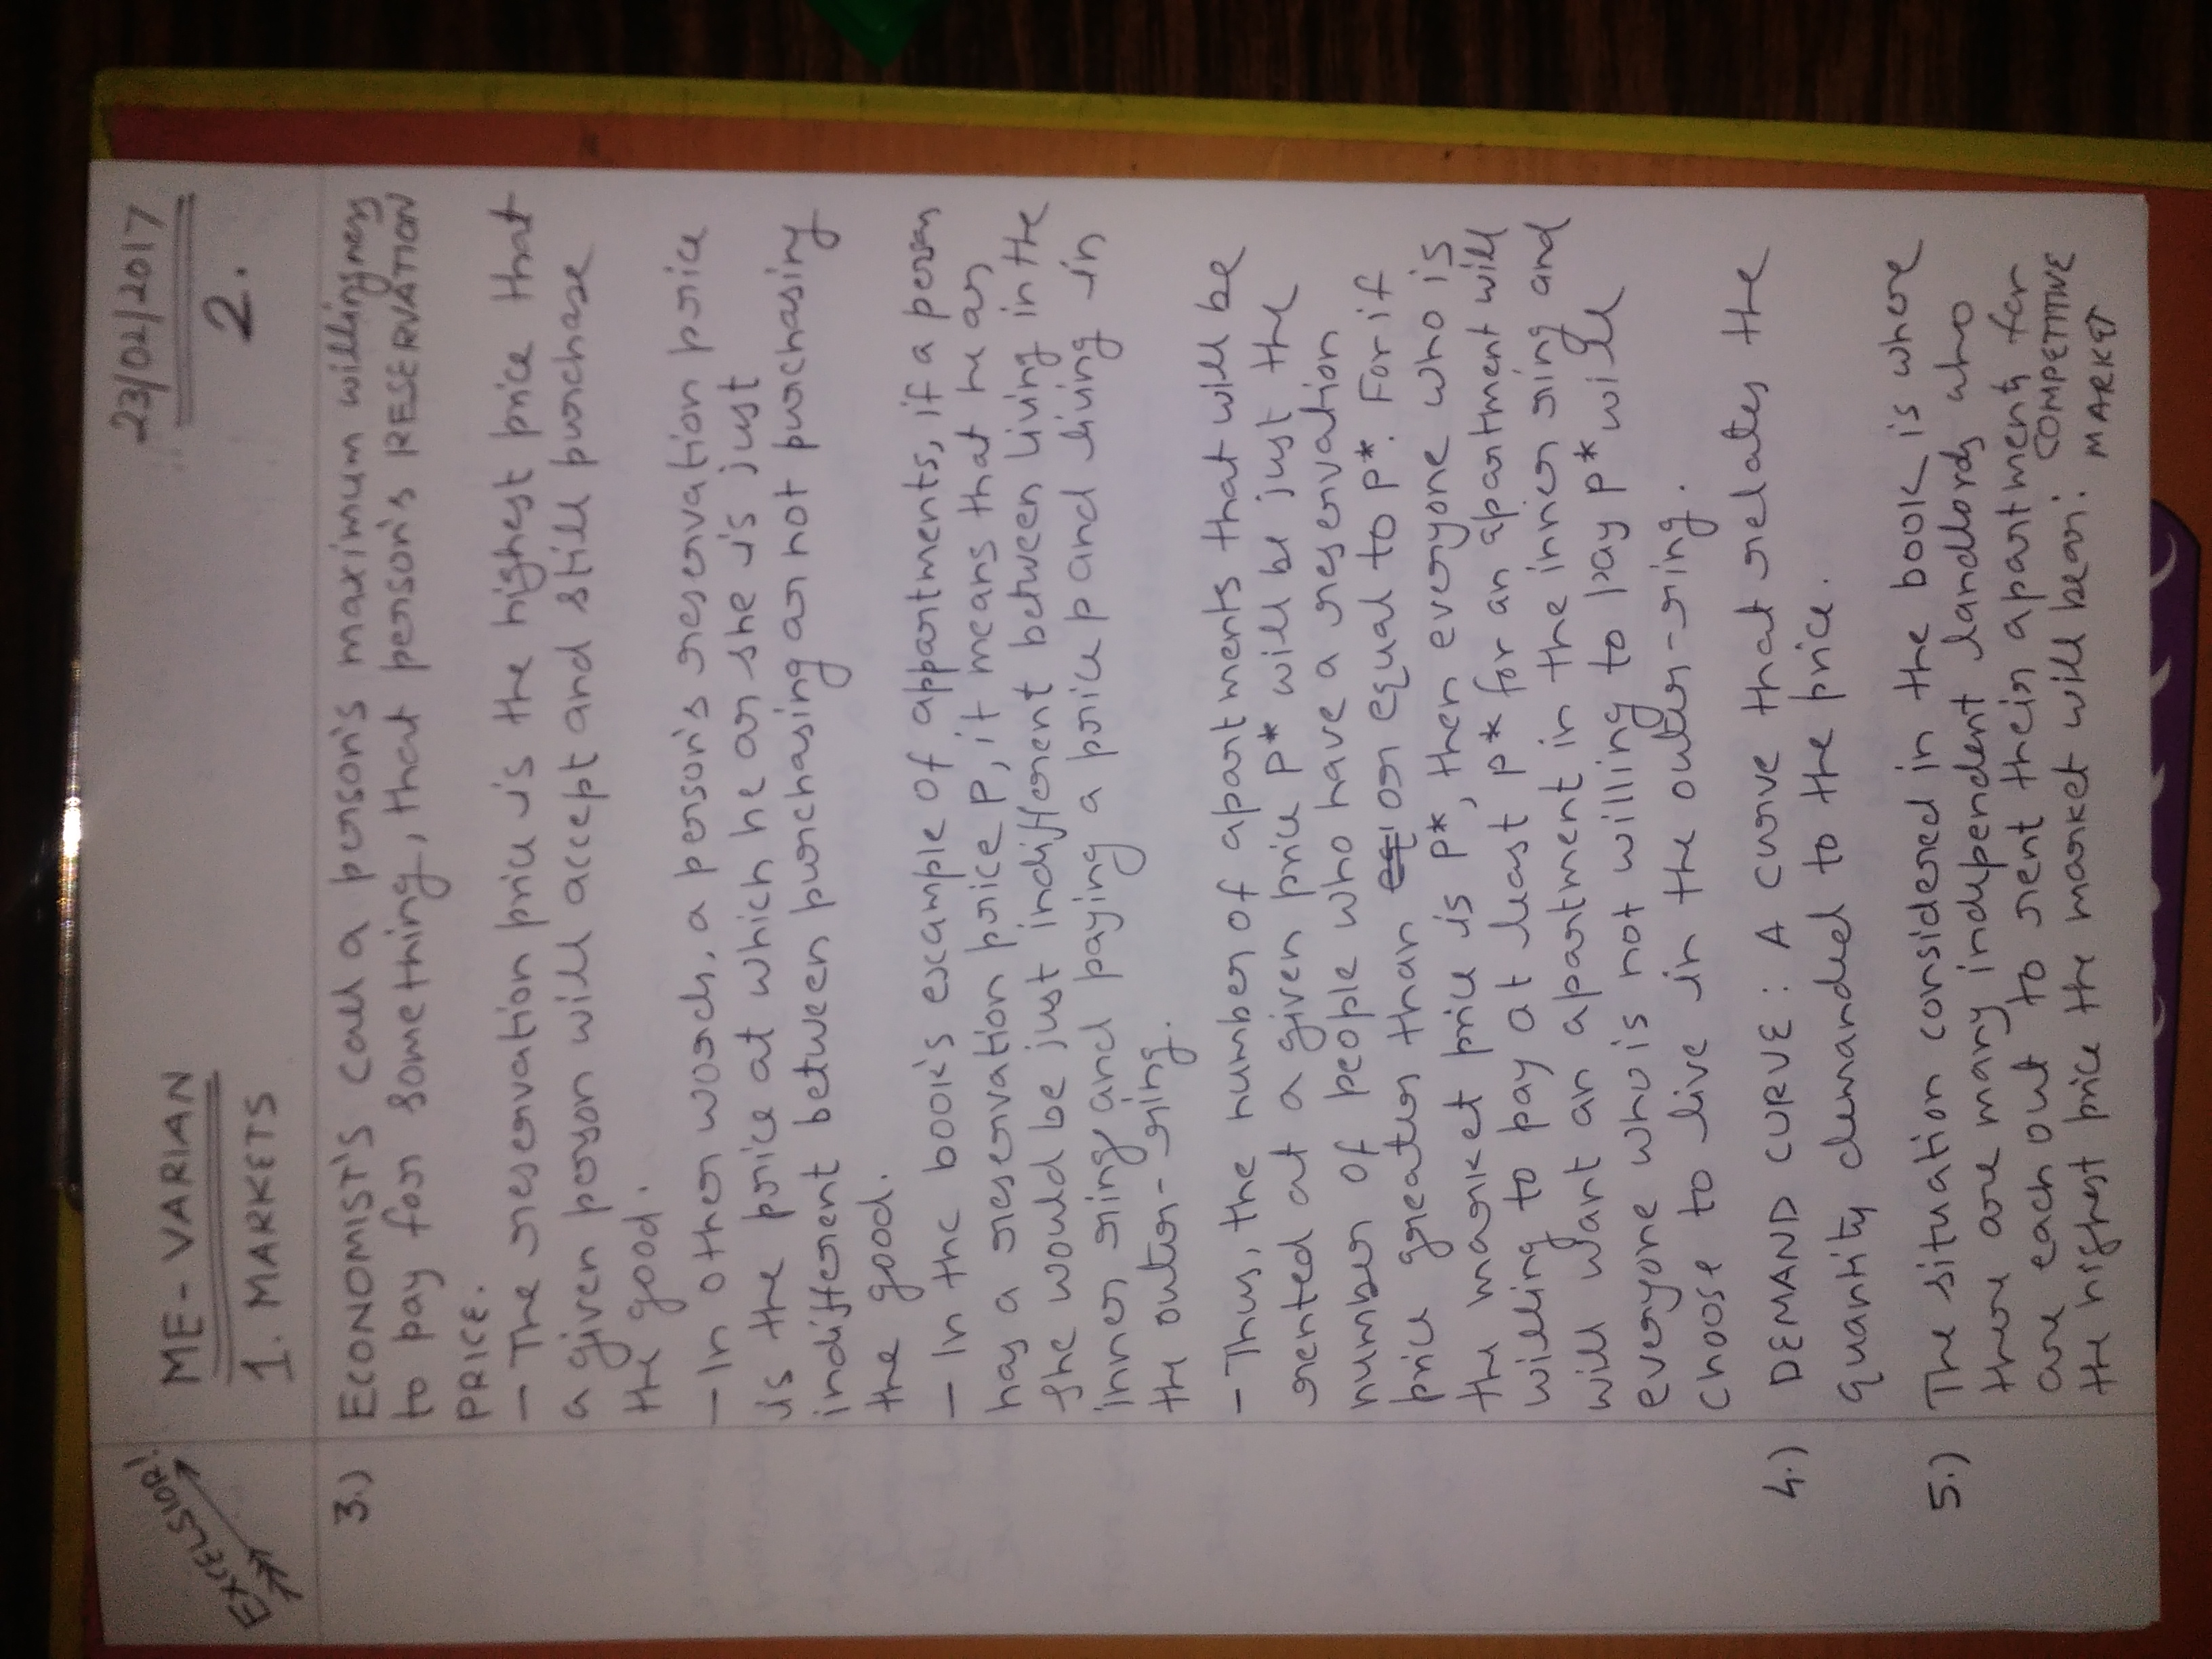 EXCELSIOR!
ME - VARIAN
23/02/2017
1. MARKETS
2.
3.) ECONOMIST'S call a person's maximum willingness
to pay for something, that person's RESERVATION
PRICE.
- The reservation price is the highest price that
a given person will accept and still purchase
the good.
- In other words, a person's reservation price
is the price at which he or she is just
indifferent between purchasing or not purchasing
the good.
- In the book's example of appartments, if a person
has a reservation price P, it means that he or
she would be just indifferent between living in the
inner ring and paying a price p and living in
the outer-ring.
- Thus, the number of apartments that will be
rented at a given price P* will be just the
number of people who have a reservation
price greater than or equal to P*. For if
the market price is P*, then everyone who is
willing to pay at least P* for an apartment will
will want an apartment in the inner ring and
everyone who is not willing to pay P* will
choose to live in the outer-ring.
4.) DEMAND CURVE: A curve that relates the
quantity demanded to the price.
5.) The situation considered in the book is where
there are many independent landlords who
are each out to rent their apartments for
the highest price the market will bear: COMPETITIVE
MARKET